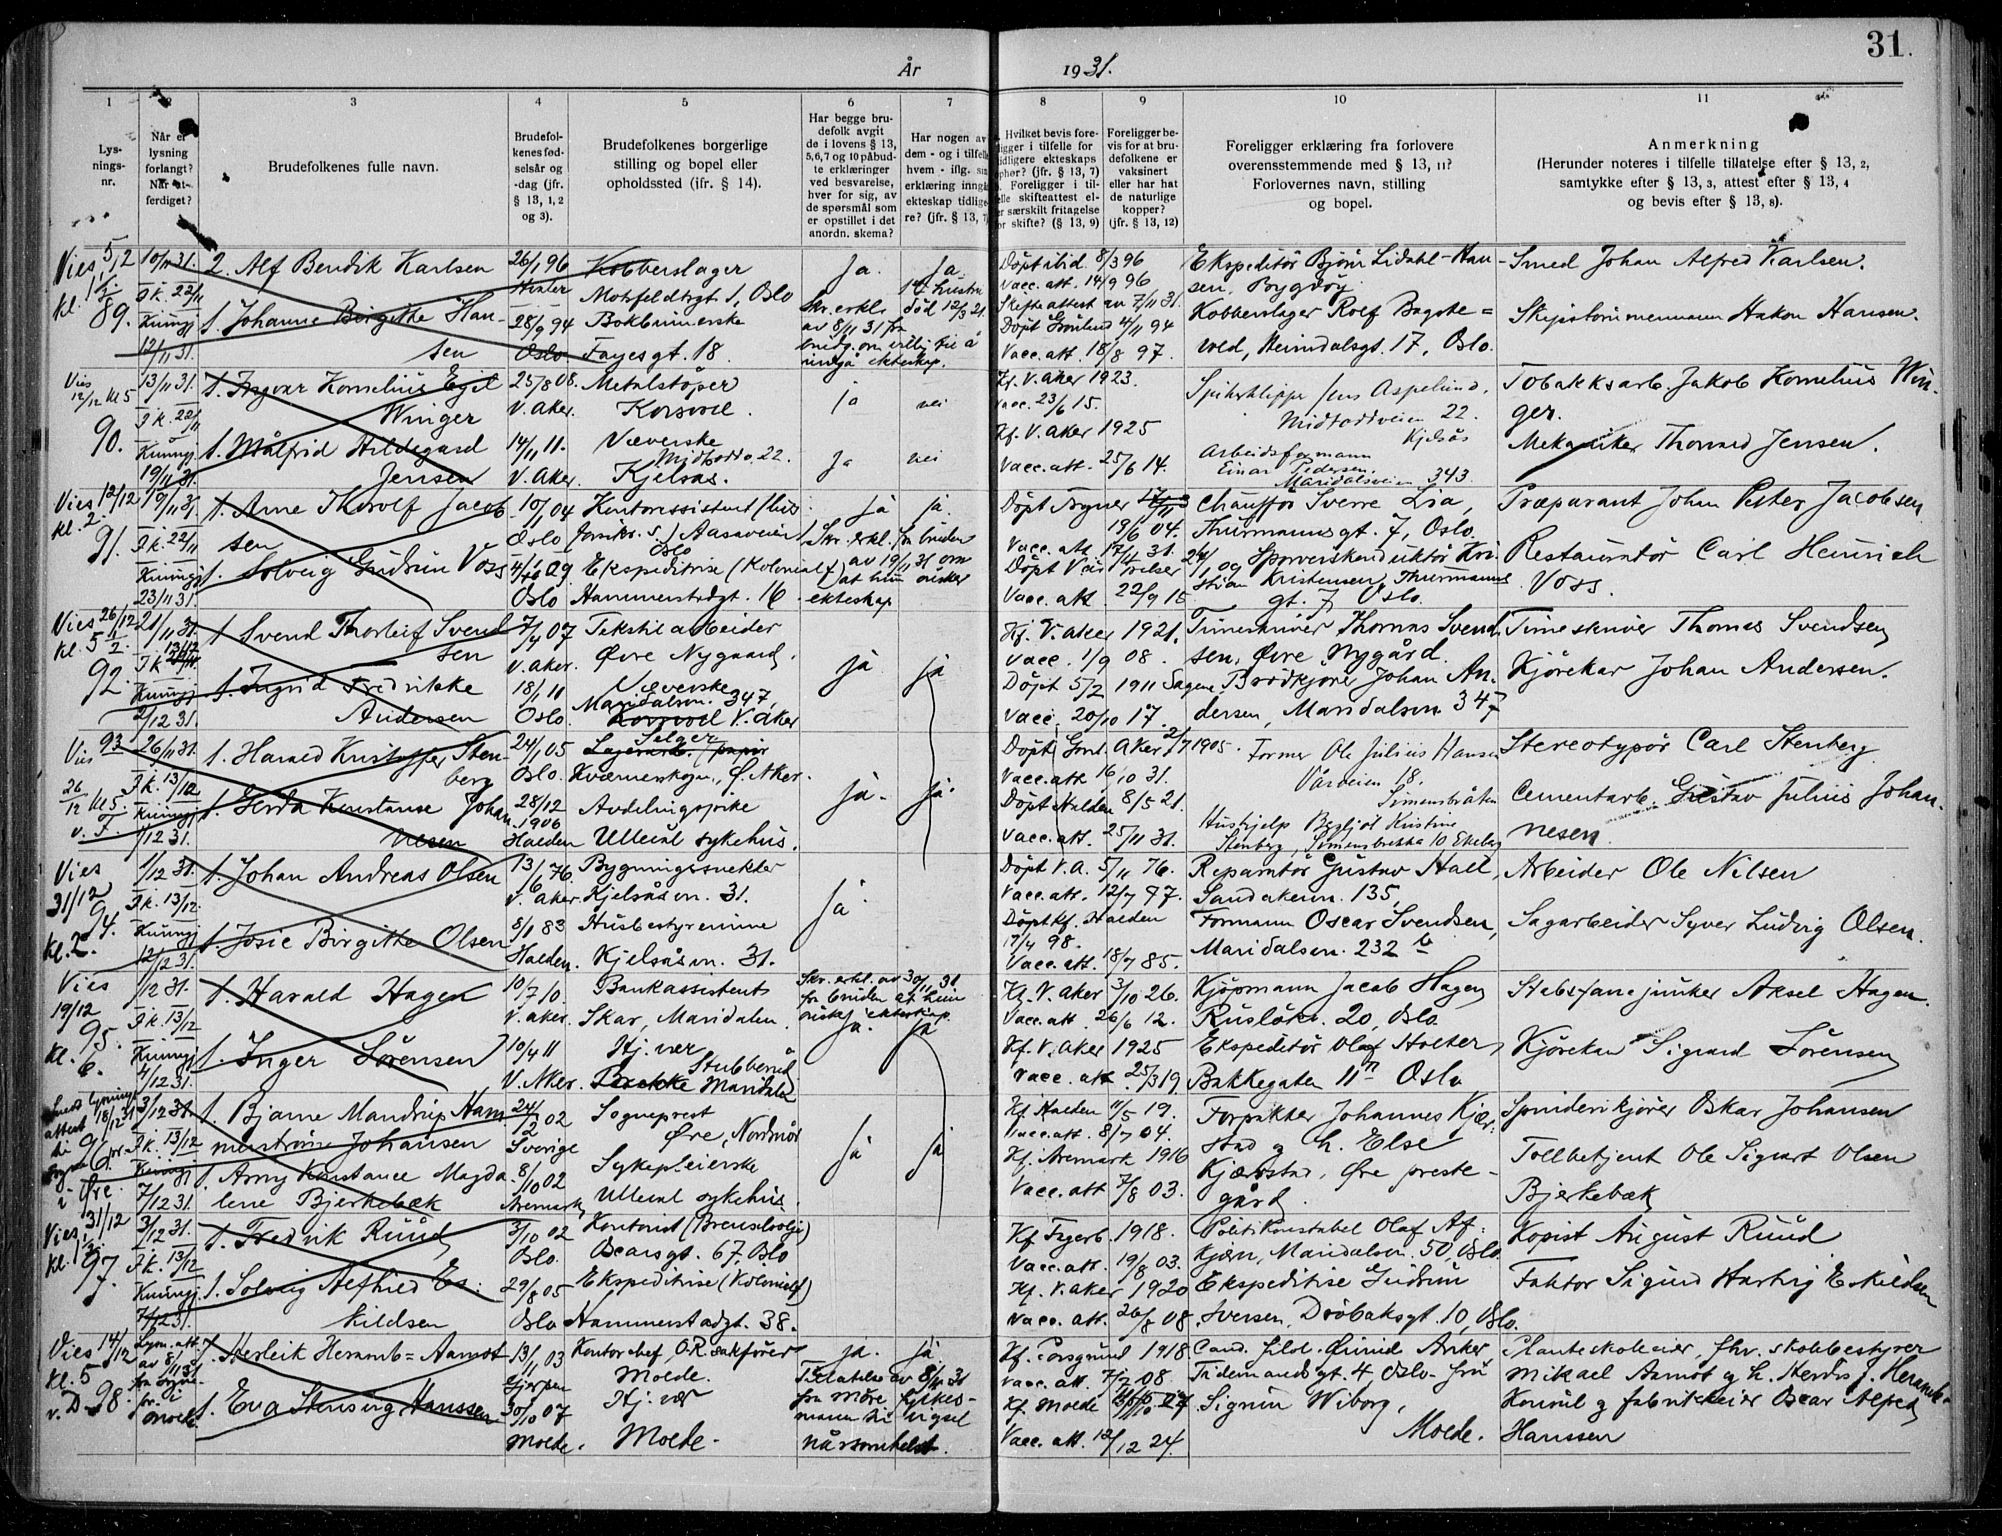 31.
År 1931.
1 2 3 4 5 6 7 8 9 10 11
Lys-
nings-
nr.
Når er
lysning
forlangt?
Når ut-
ferdiget?
Brudefolkenes fulle navn.
Brudefol-
kenes fød-
selsår og
-dag (jfr.
§ 13, 1, 2
og 3).
Brudefolkenes borgerlige
stilling og bopel eller
opholdssted (jfr. § 14).
Har begge bru-
defolk avgit
de i lovens § 13,
5,6,7 og 10 påbud-
te erklæringer
ved besvarelse,
hver for sig, av
de spørsmål som
er opstillet i det
anordn. skema?
Har nogen av
dem - og i tilfelle
hvem - iflg. sin
erklæring inngåt
ekteskap tidlige-
re? (jfr. § 13, 7)
Hvilket bevis fore-
ligger i tilfelle for
tidligere ekteskaps
ophør? (jfr. § 13, 7)
Foreligger i til-
felle skifteattest el-
ler særskilt fritagelse
for skifte? (§ 13, 9)
Foreligger be-
vis for at bru-
defolkene er
vaksinert
eller har hat
de naturlige
kopper?
(jfr. § 13, 12)
Foreligger erklæring fra forlovere
overensstemmende med § 13, 11?
Forlovernes navn, stilling
og bopel.
Anmerkning
(Herunder noteres i tilfelle tillatelse efter § 13, 2,
samtykke efter § 13, 3, attest efter § 13, 4
og bevis efter § 13, 8).
Vies 5/12 10/11 31. 2. Alf Bendik Karlsen 26/1 96 Kobberslager Ja. Ja. Døpt 8/3 96 Ekspeditør Bjørn Lidahl-Han- Smed Johan Alfred Karlsen.
kl. 1 1/2 Fk. 22/11 Motzfeldtsgt 1, Oslo Vacc. att. 14/9 96 sen, Bygdøy
89. Kunngj. 1. Johanne Birgitte Han- 28/9 94 Skr. erkl. død 12/3 21. Skifteattest av 7/11 31. Kobberslager Rolf Bagste= Skipstømmermann Hakon Hansen.
12/11 31. sen Oslo Fayesgt. 18. av 8/11 31 fra Døpt Grønland 4/11 94 vold, Heimdalsgt. 17, Oslo.
brudg. om villig til å Vacc. att. 18/8 97.
inngå ekteskap.
Vies 12/12 kl 5 13/11 31. 1. Ingvar Kornelius Egil 25/8 08. Metalstøper ja nei Kf. V. Aker 1923. Jens Aspelund, Tobakksarb. Jakob Kornelius Win-
Fk. 22/11 Winger V. Aker. Korsvoll. Vacc. 23/6 15. Midtoddveien 22. ger.
90. Kunngj. 1. Målfrid Hildegard 14/11 11. Væverske Kf. V. Aker 1925 Kjelsås
19/11 31. Jensen V. Aker. Midtoddv. 22. Ja nei Vacc. att. 25/6 14. Arbeidsformann Mekaniker Thomas Jensen.
Kjelsås. Einar Pedersen.
Maridalsveien 343.
Vies 12/12 19/11 31. 1. Arne Thorolf Jacob- 10/1 04 Kontorassistent ja ja. Døpt Fagner Chauffør Sverre Lia, Præparant Johan Peter Jacobsen
kl. 2. Fk. 22/11 sen Oslo Aasaveien 1 Skr. erkl. fra bruden 19/6 04. Thurmannsgt. 7, Oslo.
91. Kunngj. 1. Solveig Gudrun Voss Oslo av 19/11 31 om Vacc. att. 17/11 31. Restauratør Carl Heinrich
23/11 31. Oslo Ekspeditrise (Kolonial) at hun ønsker Døpt Vår Frelser Voss.
Hammerstadgt. 16. ekteskap Vacc. att. 22/9 15 Kristensen, Thurmanns
gt. 7 Oslo.
Vies 26/12 21/11 31. 1. Svend Thorleif Svend- 7/4 07 Tekstilarbeider Kf. V. Aker 1921. Timeskriver Thomas Svend- Timeskriver Thomas Svendsen
kl. 5 1/2. Fk. 13/12 sen V. Aker. Øvre Nygaard. ja ja Vacc. 1/9 08. sen, Øvre Nygård.
92. Kunngj. 1. Ingrid Fredrikke 18/1 11 Væverske Døpt 5/2 1911 Sagene Brødkjører Johan An- Kjørekar Johan Andersen.
2/12 31. Andersen Oslo. Maridalsvn. 347, Vacc. 20/10 17. dersen, Maridalsvn. 347
Korsvoll V. Aker
93 Vies 26/11 31. 1. Harald Kristoffer Sten- 24/1 05 Selger Døpt 1905. Former Ole Julius Hansen Stereotypør Carl Stenberg
26/12 kl 5. Fk. 13/12 berg Oslo. Kværnerskogn., Ø. Aker. Vacc. att. 16/10 31. Vårveien 18.
Kunngj. 1. Gerda Konstanse Johan- 28/12 Avdelingspike ja. ja. Døpt Halden 8/5 21. Simensbråten Cementarb. Gustav Julius Johan-
1/12 31. nesen 1906 Halden Ullevål sykehus. Vacc. att. 25/11 31. Hushjelp Bergljot Kristine nesen.
Stenberg, Simensbrekka 10 Ekeberg
Vies 1/12 31. 1. Johan Andreas Olsen 13/6 76. Bygningssnekker Døpt V. A. 5/11 76. Reparatør Gustav Hall, Arbeider Ole Nilsen
31/12 Fk. 13/12. V. Aker Kjelsåsvn. 31. ja. Vacc. att. 12/7 77. Sandakervn. 135,
94. Kunngj. 1. Josie Birgitte Olsen 8/1 83 Husbestyrerinne Døpt Kf. Halden Formann Oscar Svendsen, Sagarbeider Syver Ludvig Olsen.
kl. 2. 12/12 31. Halden. Kjelsåsvn. 31. 17/4 98. Maridalsvn. 232 b
Vacc. att. 18/7 85.
Vies 1/12 31. 1. Harald Hagen 10/7 10. Bankassistent Skr. erkl. av 30/11 31. Kf. V. Aker 3/10 26. Kjøpmann Jacob Hagen Stabsfanejunker Aksel Hagen.
19/12 Fk. 13/12 V. Aker. Skar, Maridalen. fra bruden at hun Vacc. att. 26/6 12. Ruseløkv. 20, Oslo.
95. Kunngj. 1. Inger Sørensen 10/4 11 Hj. vær ønsker ekteskap. Kf. V. Aker 1925 Ekspeditør Olaf Holter, Kjørekar Sigurd Sørensen
kl. 6. 4/12 31. V. Aker. Stubberud ja. ja Vacc. att. 25/3 19. Bakkegaten 11 Oslo
Brekke Maridalen
attest 18/12 31 3/12 31. 1. Bjarne Mandrup Ham- 24/2 02 Sogneprest Kf. Halden 11/5 19. Forpakter Johannes Kjær- Johansen
96 Fk. 13/12 merstrøm Johansen Sverige Øre, Nordmør ja ja Vacc. att. 8/7 04. stad og h. Else
Kunngj. 1. Arny Konstance Magda- 8/10 02 Sykepleierske Kf. Aremark 1916 Kjærstad, Øre preste- Tollbetjent Ole Sigvart Olsen
i Øre. 7/12 31. lene Bjerkebæk Aremark Ullevål sykehus. Vacc. att. 7/8 03. gård Bjerkebæk
Vies 31/12 3/12 31. 1. Fredrik Ruud 3/10 02 Kontorist Kf. Fagerb. 1918. Politikonstabel Olaf Af- Kopist August Ruud
kl. Fk. 13/12 Oslo. Oscarsgt. 67, Oslo Vacc. att. 19/8 03. kjærn, Maridalsvn. 50, Oslo.
97. Kunngj. 1. Solveig Alfhild Es- 29/8 05 Ekspeditrise (Kolonial) Kf. V. Aker 1920 Ekspeditrise Gudrun Faktor Sigurd Hartvig Eskildsen
7/12 31. kildsen Oslo Hammerstadgt. 38. Vacc. att. 26/8 08. Iversen, Drøbaksgt. 10, Oslo.
Vies 14/12 Lysn. att. 1. Herleik Heramb=Aamot 13/11 03 Kontorchef, O.R. sakfører ja. ja. Kf. Porsgrund 1918. Cand. filol. Øivind Anker Planteskoleeier, fhv. skolebestyrer
kl. 5 av 8/11 31 Gjerpen Molde. Tillatelse av 8/11 31 Vacc. att. 7/2 08. Tidemandsgt. 4 Oslo. Fru Mikael Aamot og h. Herdis J. Heramb.
98. 1. Eva Stensvig Hanssen 30/10 07 Hj. vær fra Møre fylkes- Kf. Molde Sigrun Wiborg, Konsul og fabrikkeier Oscar Alfred
Molde Molde. Molde. mann til vigsel Vacc. att. 12/12 24. Molde. Hanssen
nårsomhelst.